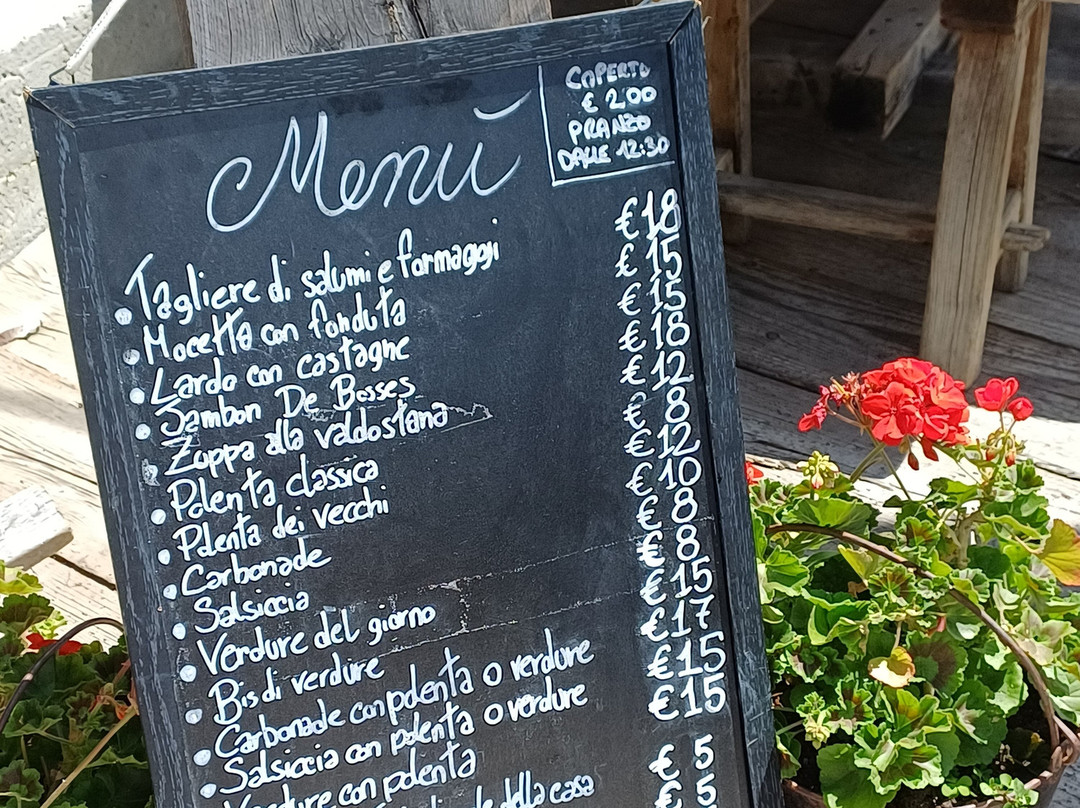 Menù
COPERTO
€ 2,00
PRANZO
DALLE 12:30
Tagliere di salumi e formaggi €18
Mocetta con fonduta €15
Lardo con castagne €15
Jambon De Bosses €18
Zuppa alla valdostana €12
Polenta classica € 8
Polenta dei vecchi €12
Carbonade €10
Salsiccia € 8
Verdure del giorno € 8
Bis di verdure €15
Carbonade con polenta o verdure €17
Salsiccia con polenta o verdure €15
Verdure con polenta €15
della casa € 5
€ 5